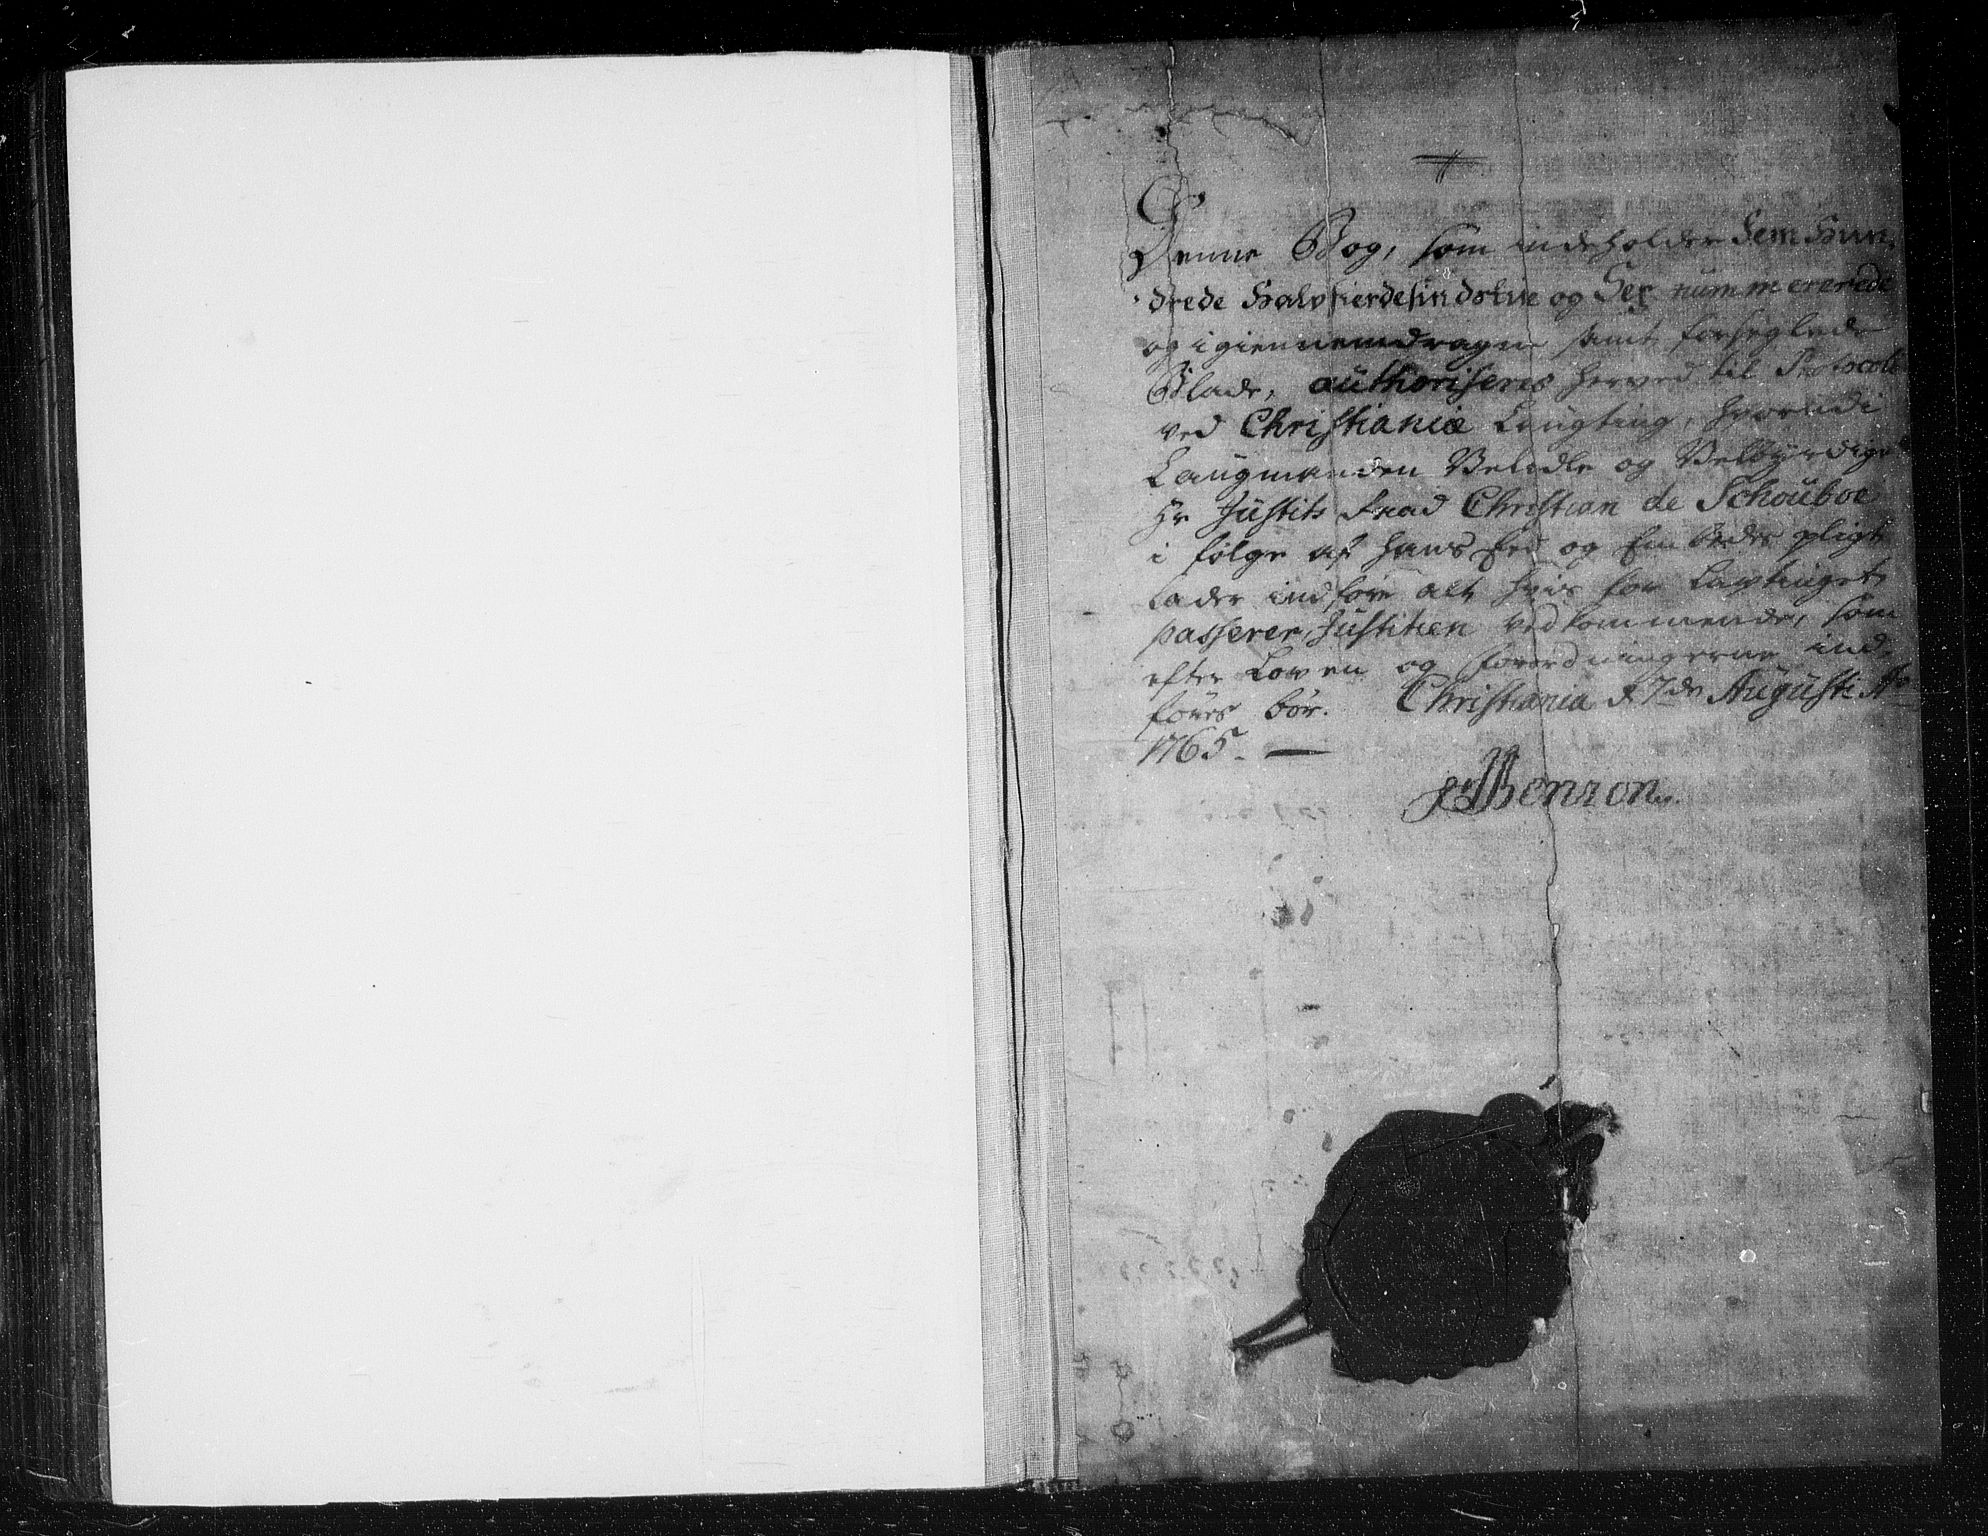 Denne Bog, som indeholder Fem Hun-
drede Halvfierdesindstive og Sex nummererede
og igiennemdragne samt forseglede
Blade, authoriseres herved til Protocoll
ved Christianiæ Laugting, hvorudi
Laugmanden Velædle og Velbyrdige
Hr Justitz Raad Christian de Schouboe
i følge af hans Eed og Embedes pligt
lader indføre alt hvis for Lavtinget
passerer, Justitien vedkommende, som
efter Loven og Forordningerne ind-
føres bør. Christiania d 7de Augusti Ao
1765. —
JBenzon